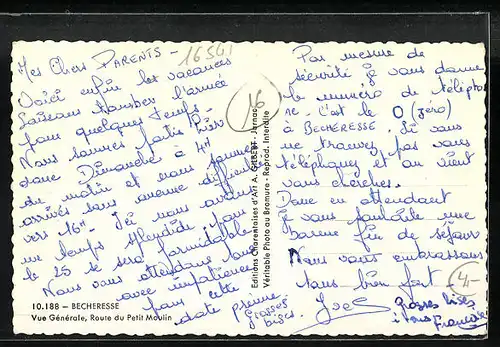 16541
Mes Chers PARENTS -
Voici enfin les vacances
Laissons tomber l'armée
pour quelques temps.
Nous sommes partis hier
donc Dimanche à 4H
du matin et nous sommes
arrivés sans aucune difficulté
vers 16H. Ici nous avons
un temps splendide, pour
le 25 ce sera formidable
Nous vous attendons donc
avec impatience
pour cette
date
Grosses
bises
Par mesure de
sécurité je vous donne
le numéro de télépho
ne. C'est le 0 (zéro)
à BECHERESSE. Si vous
ne trouvez pas vous
téléphonez et on vient
vous chercher.
Donc en attendant
je vous souhaite une
bonne fin de séjour
Nous vous embrassons
tous bien fort.
Yves
Grosses bises
à tous
Francine
16
4,-
Editions Charentaises d'Art A. GILBERT - Jarnac
Véritable Photo au Bromure - Reprod. Interdite
10.188 – BECHERESSE
Vue Générale, Route du Petit Moulin